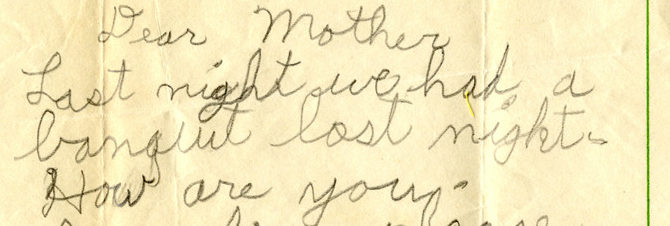 Dear Mother
Last night we had a
banquit last night.
How are you.